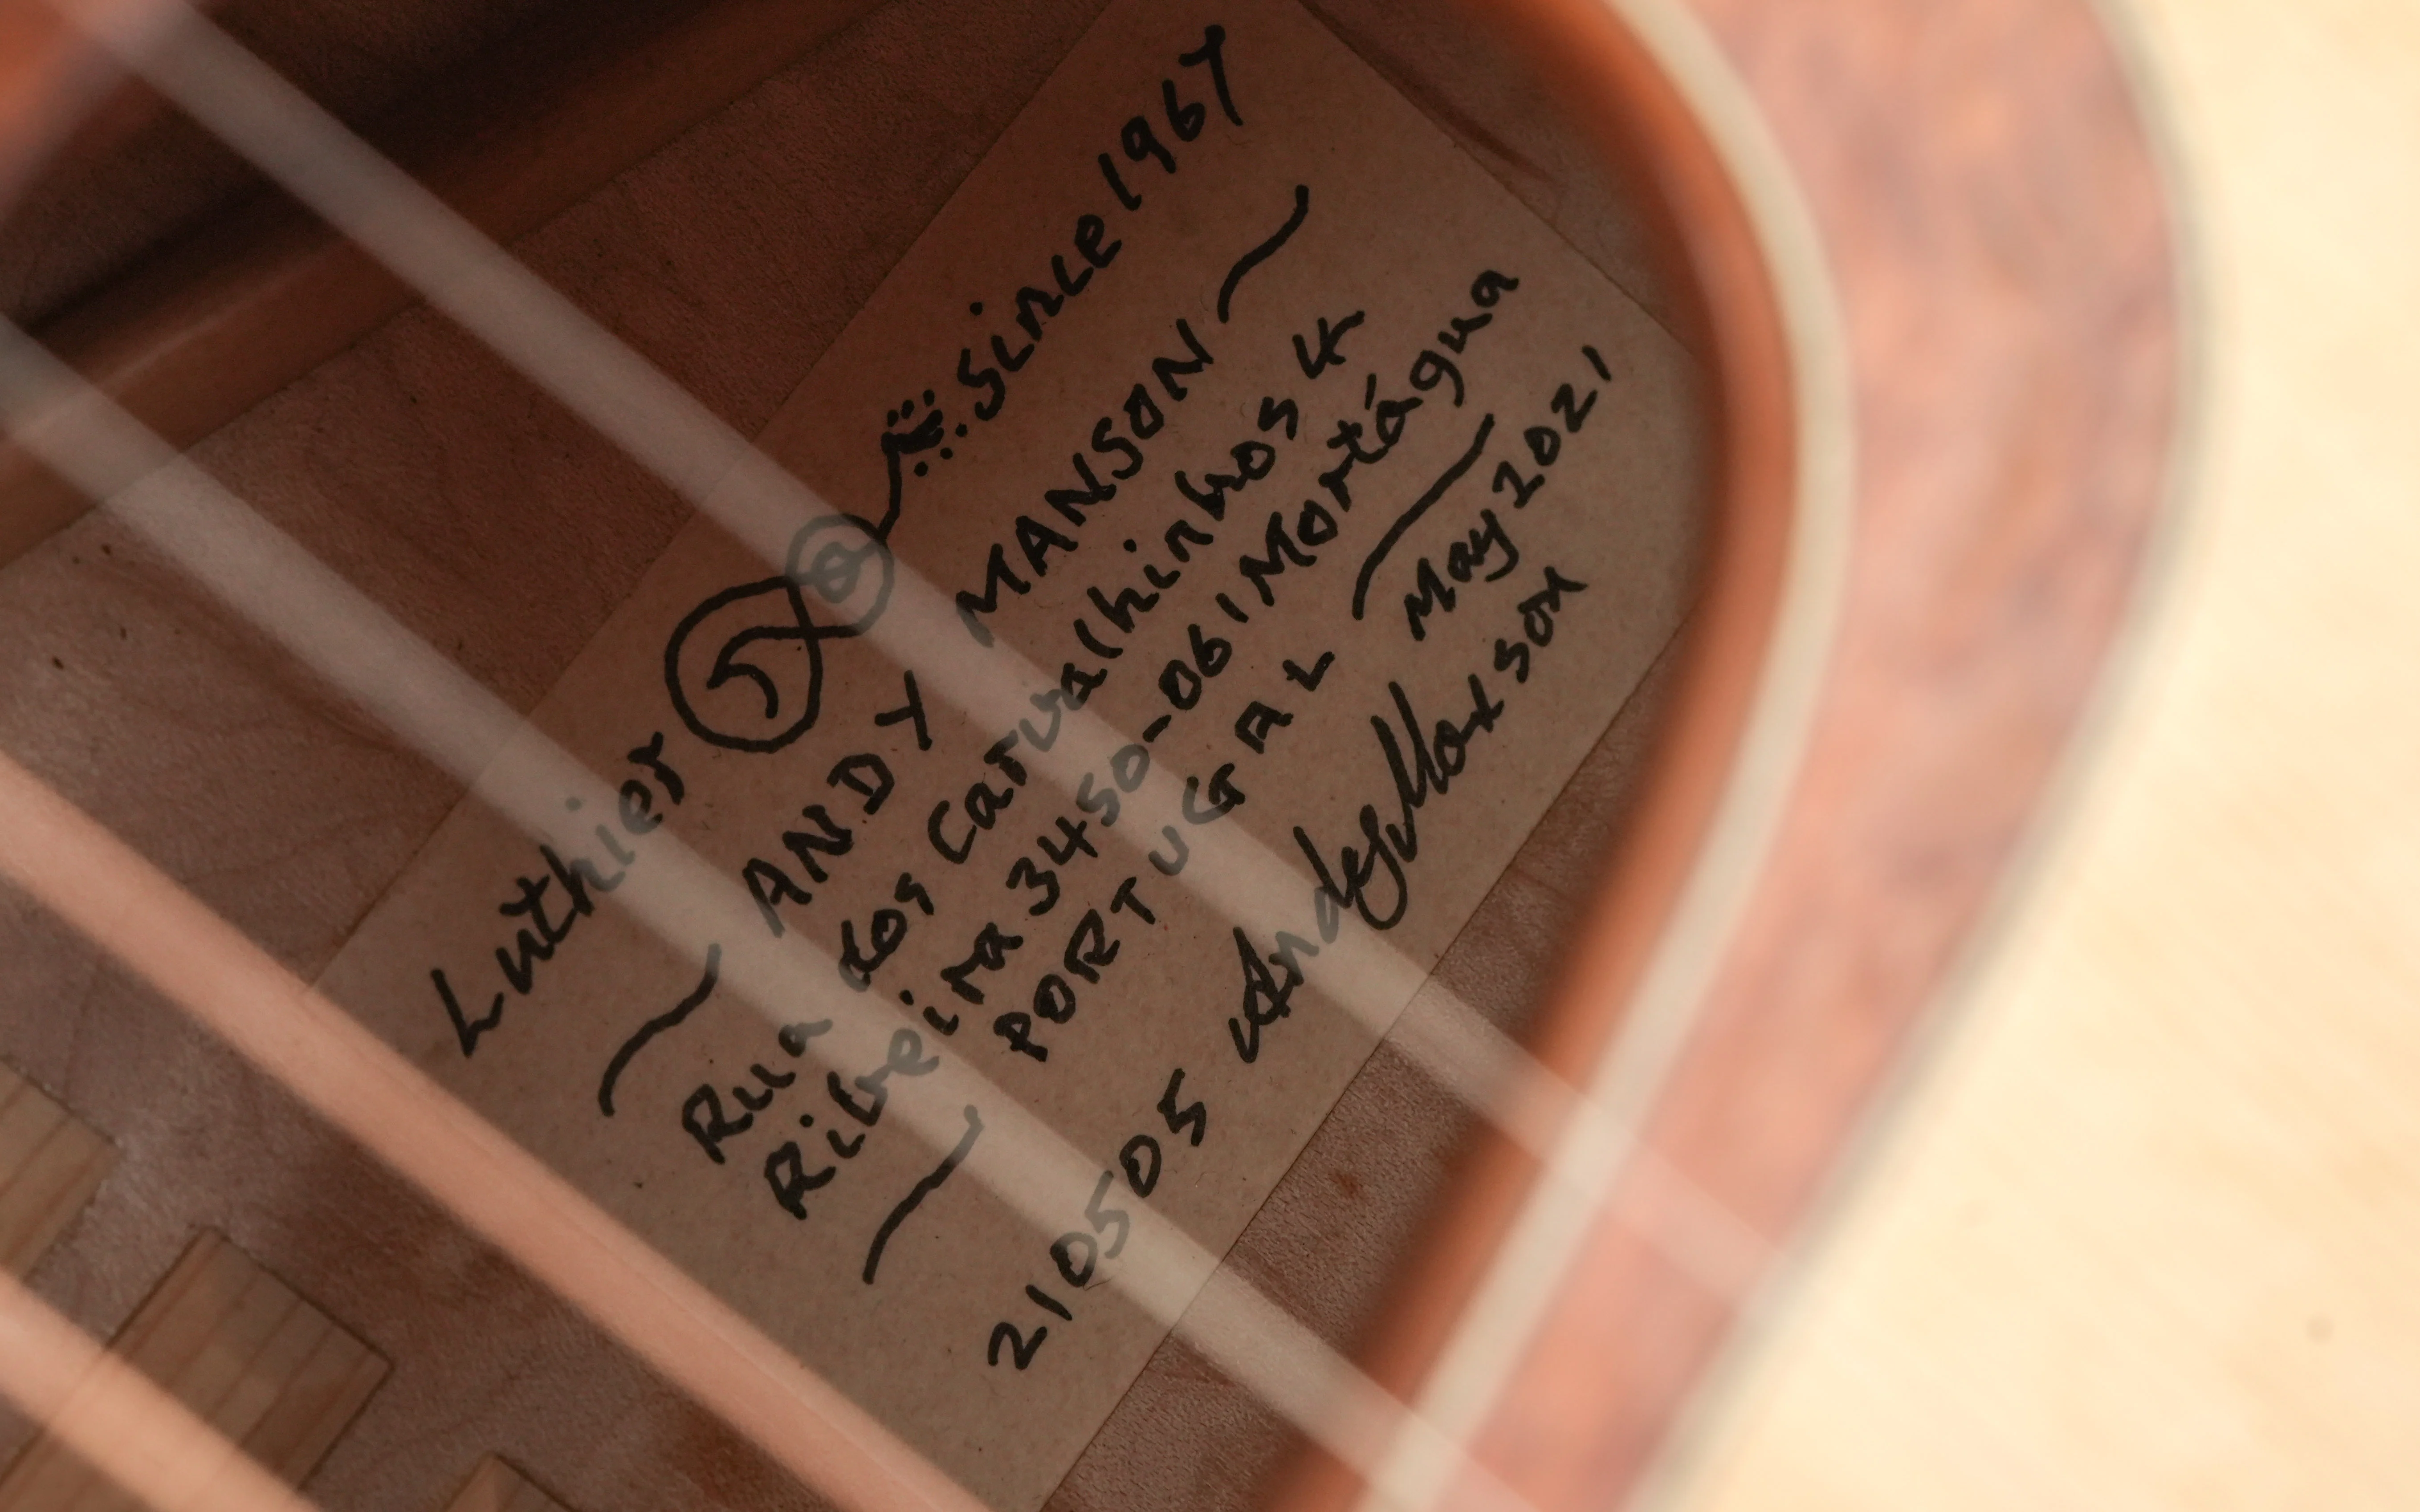 Luthier Since 1967
ANDY MANSON
Rua dos Carvalhinhos 4
Ribeira 3450-061 Mortágua
PORTUGAL May 2021
210505 Andy Manson